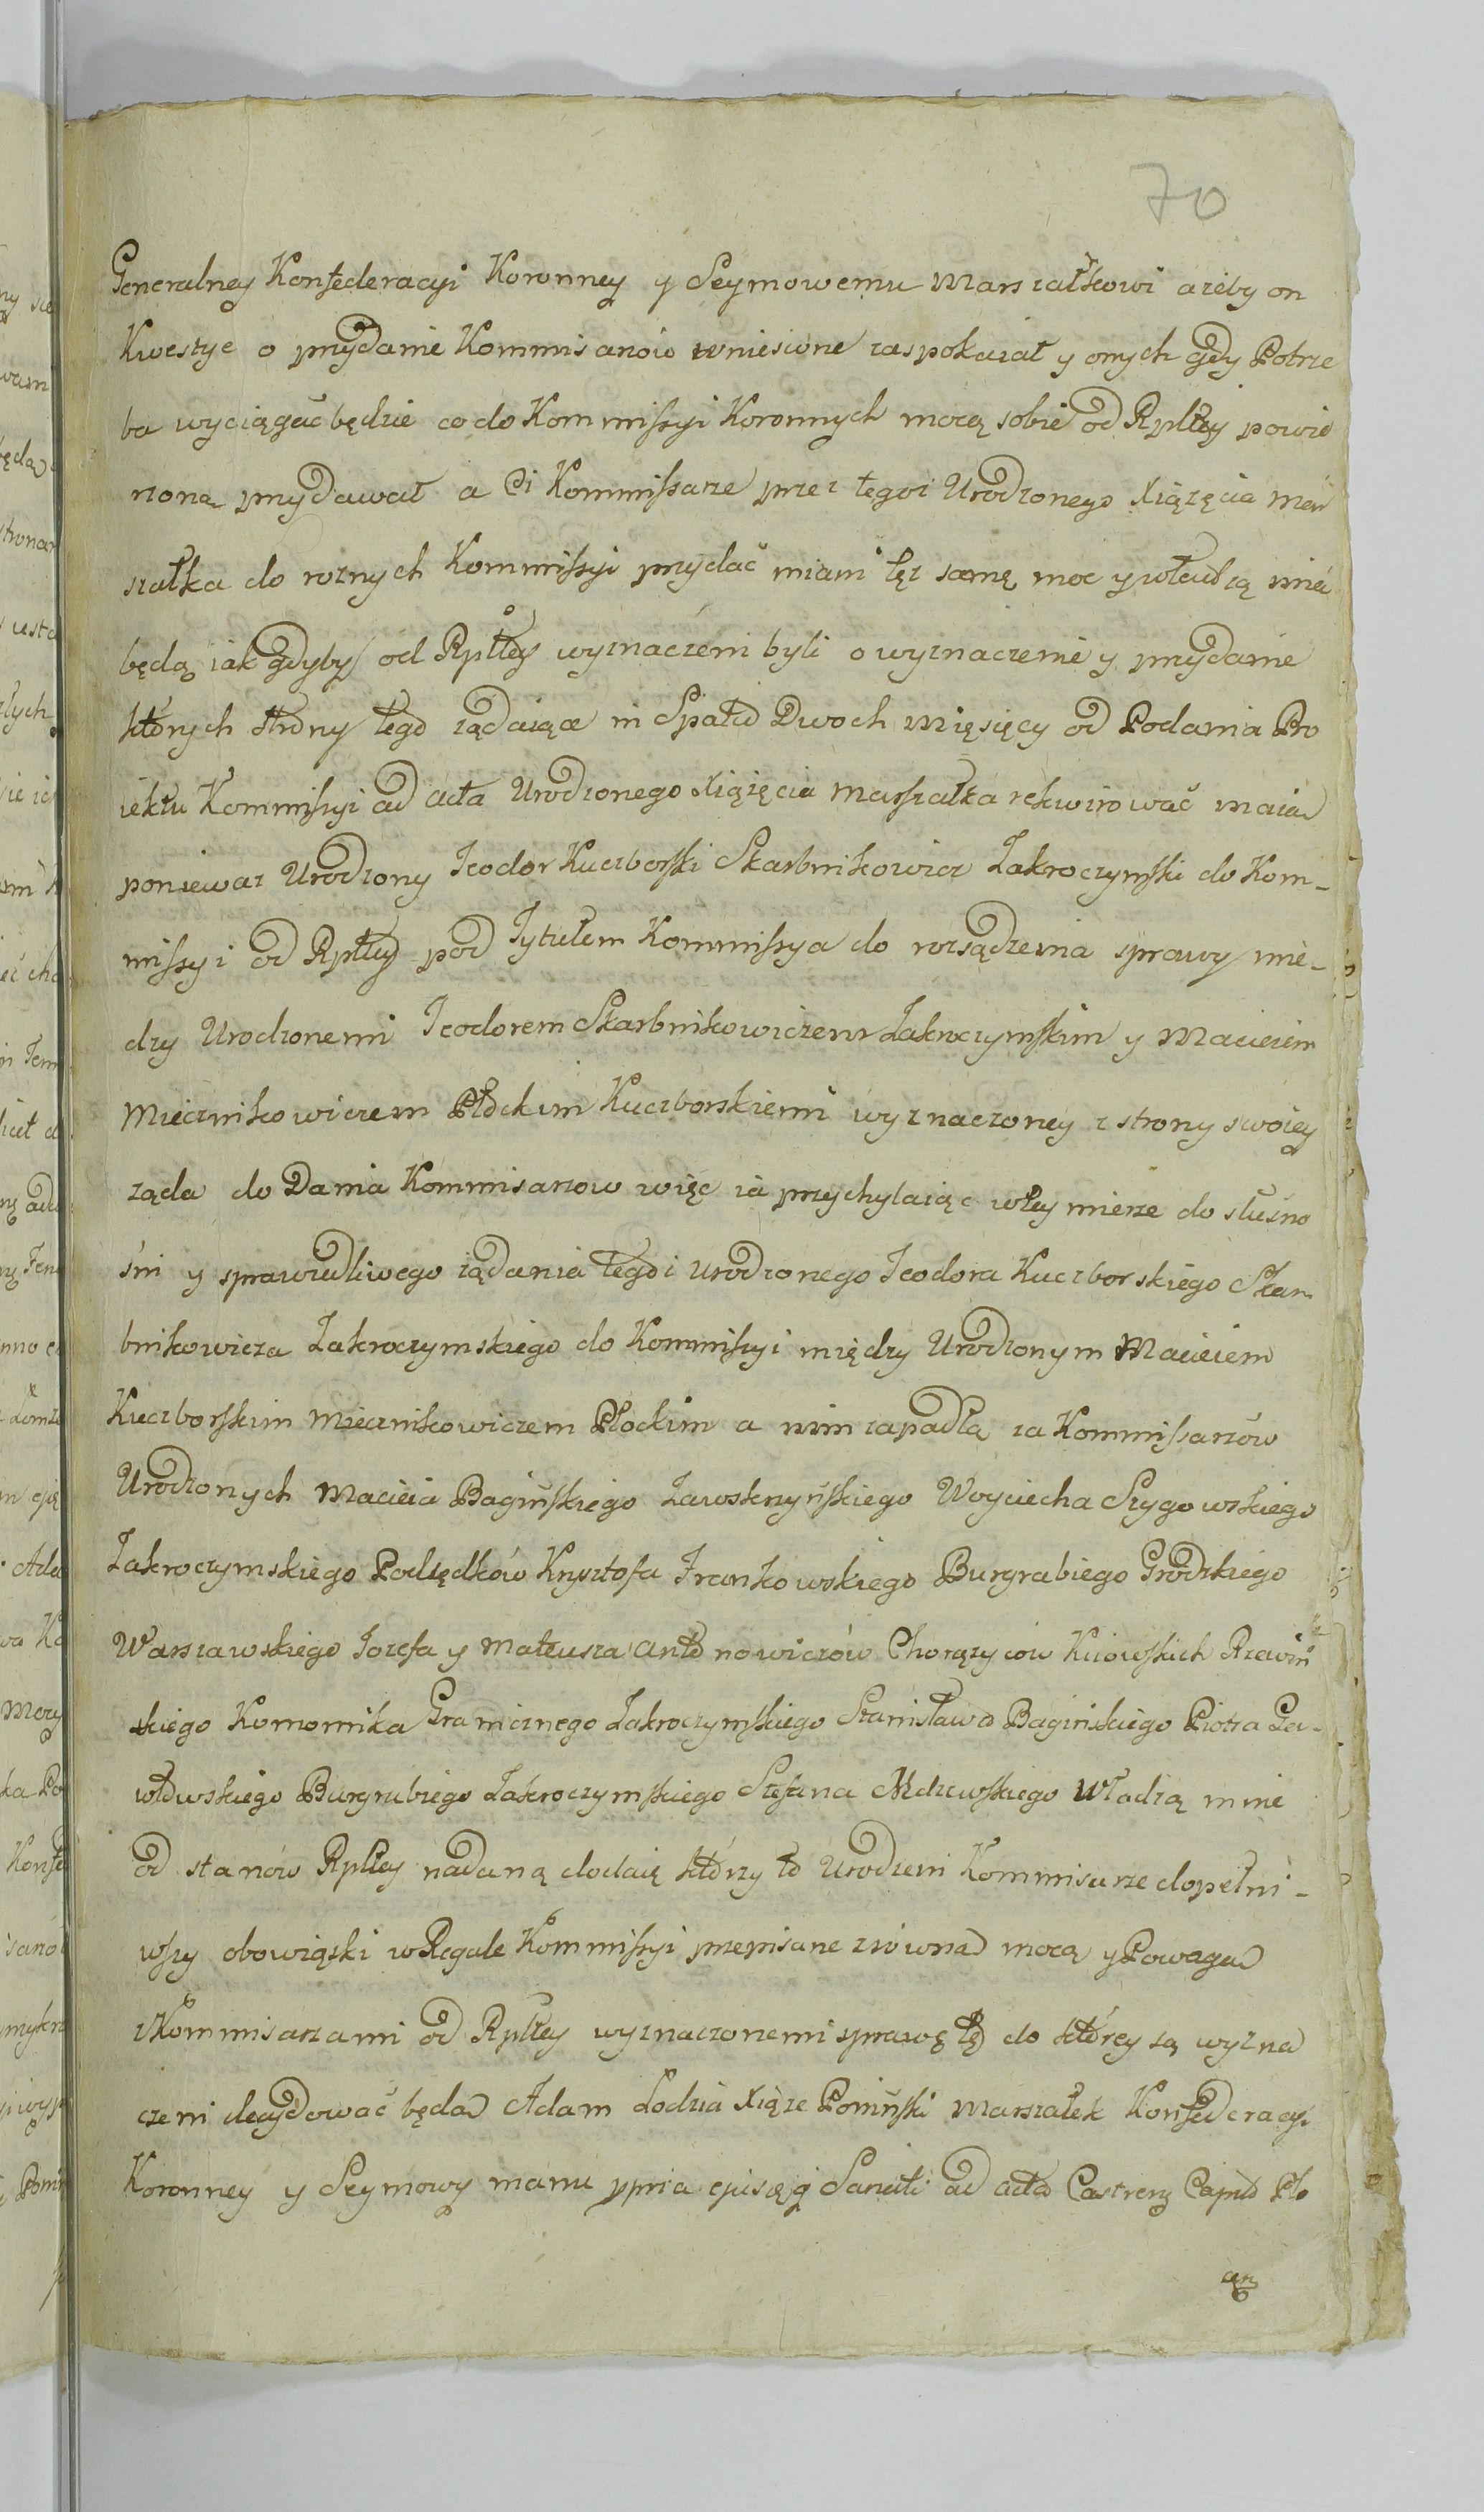 70
Generalney Konfederacyi Koronney y Seymowemu Marszałkowi ażeby on
Kwestye o przydanie Kommisarzów wniesione zaspokaiał y onych gdy Potrze
ba wyciągać będzie co do Kommissyi Koronnych mocą sobie od Rpltey powie
rzoną przydawał a Ci Kommissarze przez tegoż Urodzonego Xiążęcia Mar
szałka do roznych Kommissyi przydać miani tęż samę moc y władzą mieć
będą iak gdyby od Rpltey wyznaczeni byli o wyznaczenie y przydanie
których strony tego żądaiące in Spatio Dwoch Mięsięcy od Podania Pro
iektu Kommissyi ad acta Urodzonego Xiążęcia Marszałka rekwirować maią
poniewaz Urodzony Teodor Kuczborski Skarbnikowicz Zakroczymski do Kom-
missyi od Rpltey pod Tytułem Kommissya do rozsądzenia sprawy mie-
dzy Urodzonemi Teodorem Skarbnikowiczem Zakroczymskim y Macieiem
Miecznikowiczem Płockim Kuczborskiemi wyznaczoney z strony swoiey
ząda do Dania Kommisarzow więc ia przychylaiąc w tey mierze do słuszno
śći y sprawiedliwego ządania tegoż Urodzonego Teodora Kuczborskiego Skar
bnikowicza Zakroczymskiego do Kommissyi między Urodzonym Macieiem
Kuczborskim Miecznikowiczem Płockim a nim zapadłą za Kommissarzów
Urodzonych Macieia Bagińskiego Zawskrzyńskiego Woyciecha Szygowskiego
Zakroczymskiego Podsędków Krysztofa Frankowskiego Burgrabiego Grodzkiego
Warszawskiego Jozefa y Mateusza Antonowiczów Chorązyców Kiiowskich Rzewiń
skiego Komornika Granicznego Zakroczymskiego Stanisława Bagińskiego Piotra
Burgrabiego Zakroczymskiego Stefana Mdzewskiego władzą mnie
od stanów Rpltey nadaną dodaię którzy to Urodzeni Kommisarze dopełni-
wszy obowiąski w Regule Kommissyi przepisane z równą mocą y Powagą
z Kommisarzami od Rpltey wyznaczonemi sprawę tę do którey są wyzna
czeni decydować będą Adam Łodzia Xiąże Poniński Marszałek Konfederacyi
Koronney y Seymowy manu ppria ad acta Castren Capnlo Plo
cen